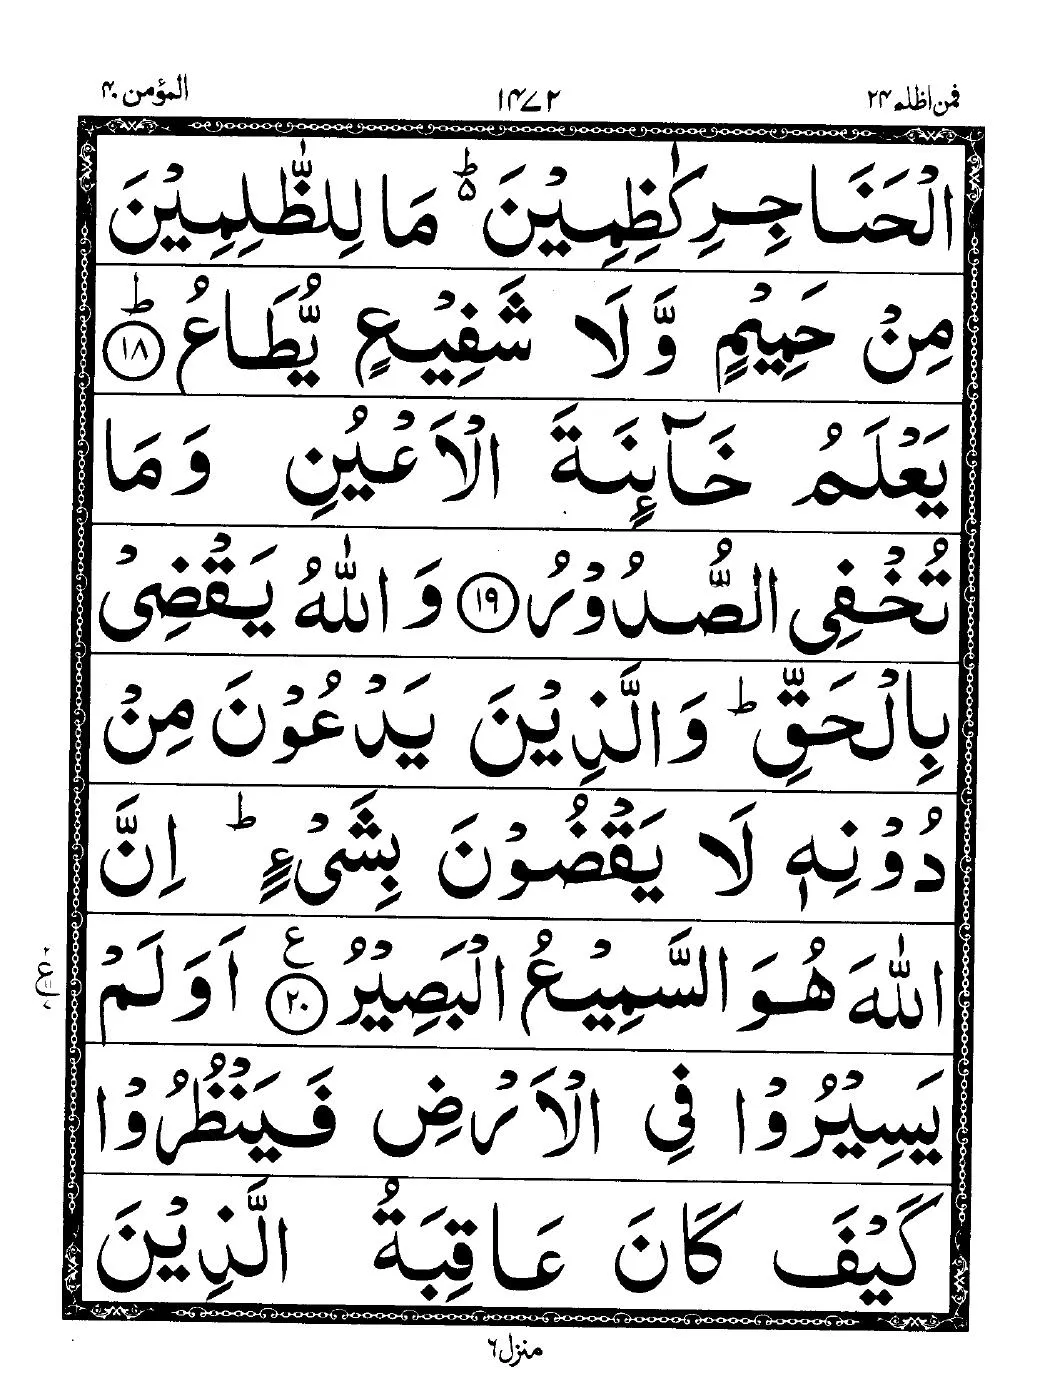 فمن اظلم ۲۴ ۱۴۷۲ المؤمن ۴۰
الْحَنَاجِرِ كٰظِمِیْنَ ؕ۬ مَا لِلظّٰلِمِیْنَ
مِنْ حَمِیْمٍ وَّ لَا شَفِیْعٍ یُّطَاعُ ؕ﴿۱۸﴾
یَعْلَمُ خَآىِٕنَةَ الْاَعْیُنِ وَ مَا
تُخْفِی الصُّدُوْرُ ﴿۱۹﴾ وَ اللّٰهُ یَقْضِیْ
بِالْحَقِّ ؕ وَ الَّذِیْنَ یَدْعُوْنَ مِنْ
دُوْنِهٖ لَا یَقْضُوْنَ بِشَیْءٍ ؕ اِنَّ
اللّٰهَ هُوَ السَّمِیْعُ الْبَصِیْرُ ﴿۲۰﴾ ع اَوَ لَمْ
یَسِیْرُوْا فِی الْاَرْضِ فَیَنْظُرُوْا
كَیْفَ كَانَ عَاقِبَةُ الَّذِیْنَ
منزل ۶